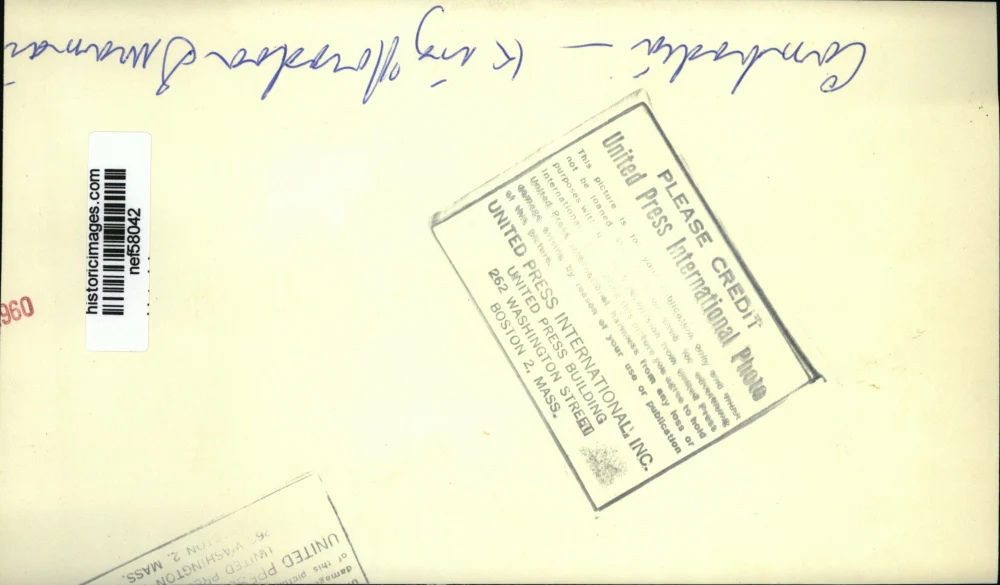 Cambodia — King Norodom Suramari
historicimages.com
nef58042
960
PLEASE CREDIT
United Press International Photo
This picture is fo you blication only and must
not be loaned used for advertising
purposes with from United Press
International picture you agree to hold
United Press International harmless from any loss or
damage arising by reason of your use or publication
of this picture.
UNITED PRESS INTERNATIONAL, INC.
UNITED PRESS BUILDING
262 WASHINGTON STREET
BOSTON 2, MASS.
damage
of this pictu
UNITED PRESS
UNITED PRE
26 WASHINGTON
TON 2, MASS.